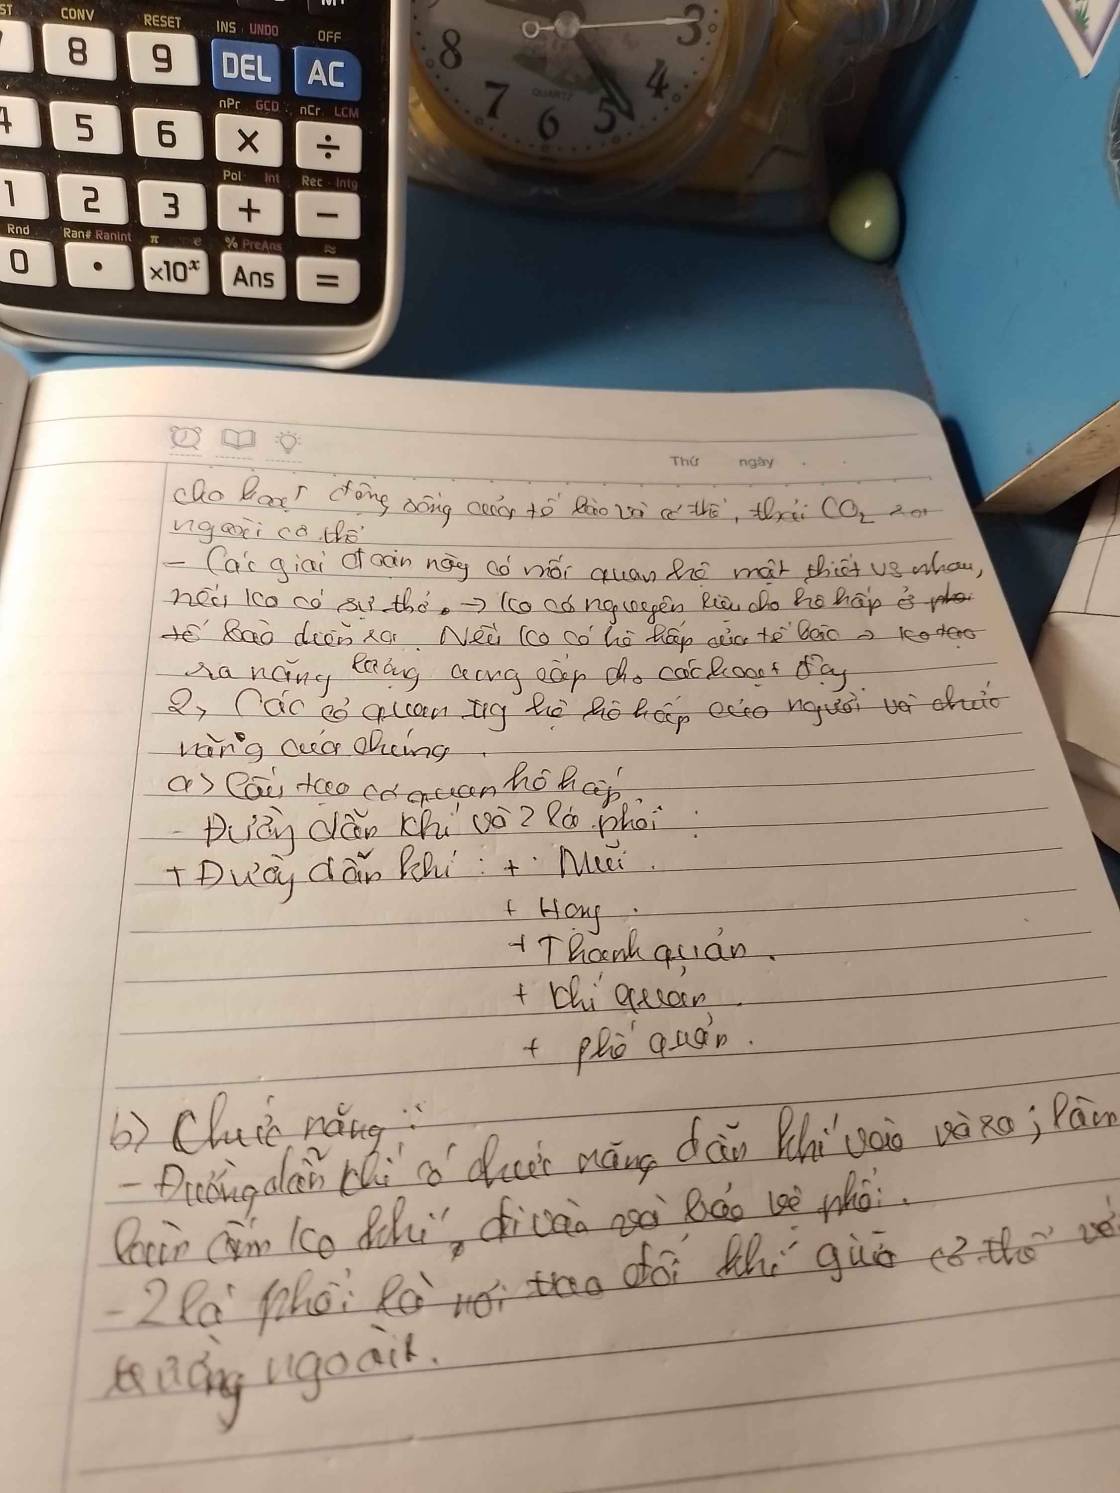 ST CONV RESET INS UNDO OFF
8 9 DEL AC
nPr GCD nCr LCM
4 5 6 × ÷
Pol Int Rec Intg
1 2 3 + −
Rnd Ran# RanInt π e % PreAns ≈
0 • ×10ˣ Ans =
8 7 6 5 4 3
QUARTZ
Thứ ngày
cho hoạt động sống của tế bào và cơ thể, thải CO₂ ra
ngoài cơ thể
- Các giai đoạn này có mối quan hệ mật thiết vs nhau,
nếu ko có sự thở → ko có nguyên liệu cho hô hấp ở
tế bào diễn ra. Nếu ko có hô hấp của tế bào → ko tạo
ra năng lượng cung cấp cho các hoạt
2, Các cơ quan trg hệ hô hấp của người và chức
năng của chúng.
a) Cấu tạo cơ quan hô hấp
- Đường dẫn khí và 2 lá phổi:
+ Đường dẫn khí: + Mũi.
+ Họng.
+ Thanh quản.
+ khí quản.
+ phế quản.
b) Chức năng:
- Đường dẫn khí có chức năng dẫn khí vào và ra; làm
ấm ko khí đi vào và bảo vệ phổi.
- 2 lá phổi là nơi trao đổi khí giữa cơ thể và
ngoài.